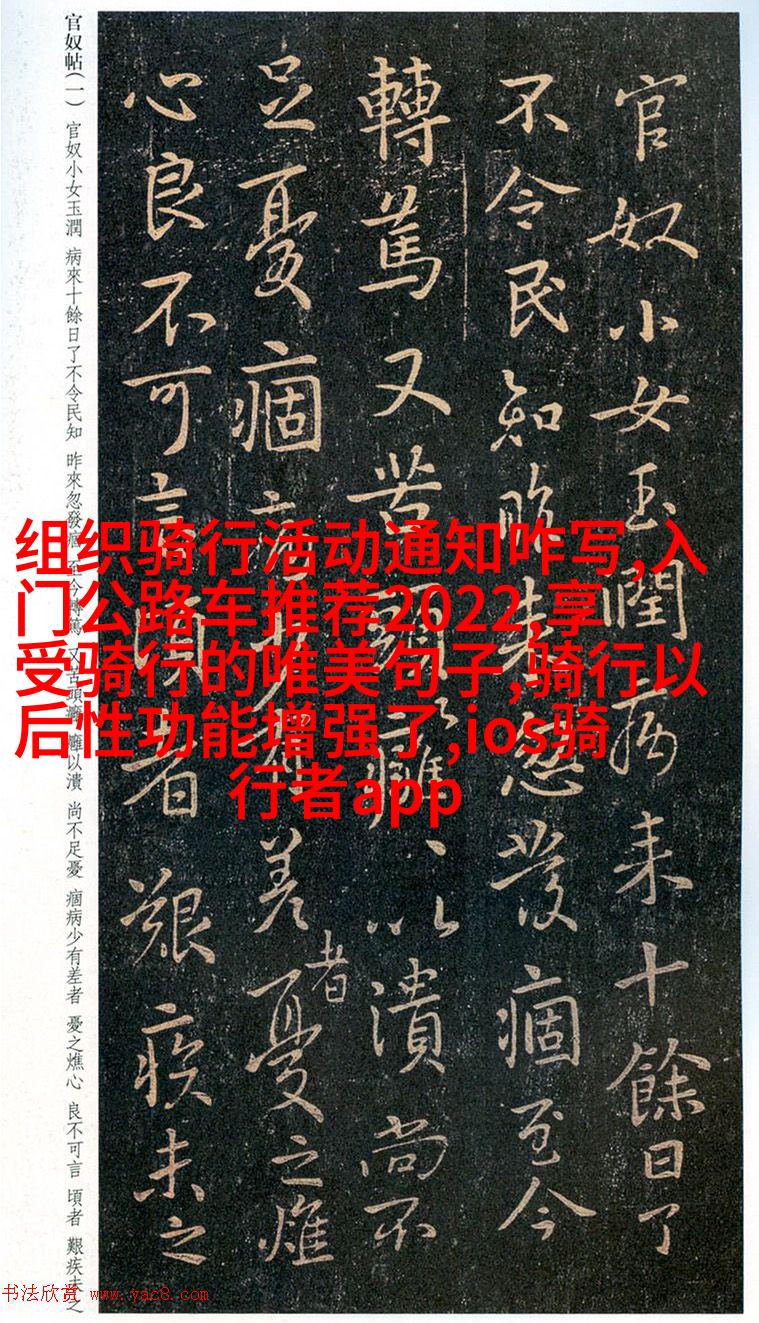 官奴小女玉潤病来十餘日了
不令民知昨来忽發痼至今
轉篤又苦頭癰、以潰尚不
足憂痼病少有差者憂之燋
心良不可言頃者艱疾未之
官奴帖(一) 官奴小女玉潤 病來十餘日了不令民知 昨來忽發痼 至今轉篤 又苦頭癰 癰以潰 尚不足憂 痼病少有差者 憂之燋心 良不可言 頃者 艱疾未之
组织骑行活动通知咋写,入
门公路车推荐2022,享
受骑行的唯美句子,骑行以
后性功能增强了,ios骑
行者app
书法欣赏 www.yac8.com